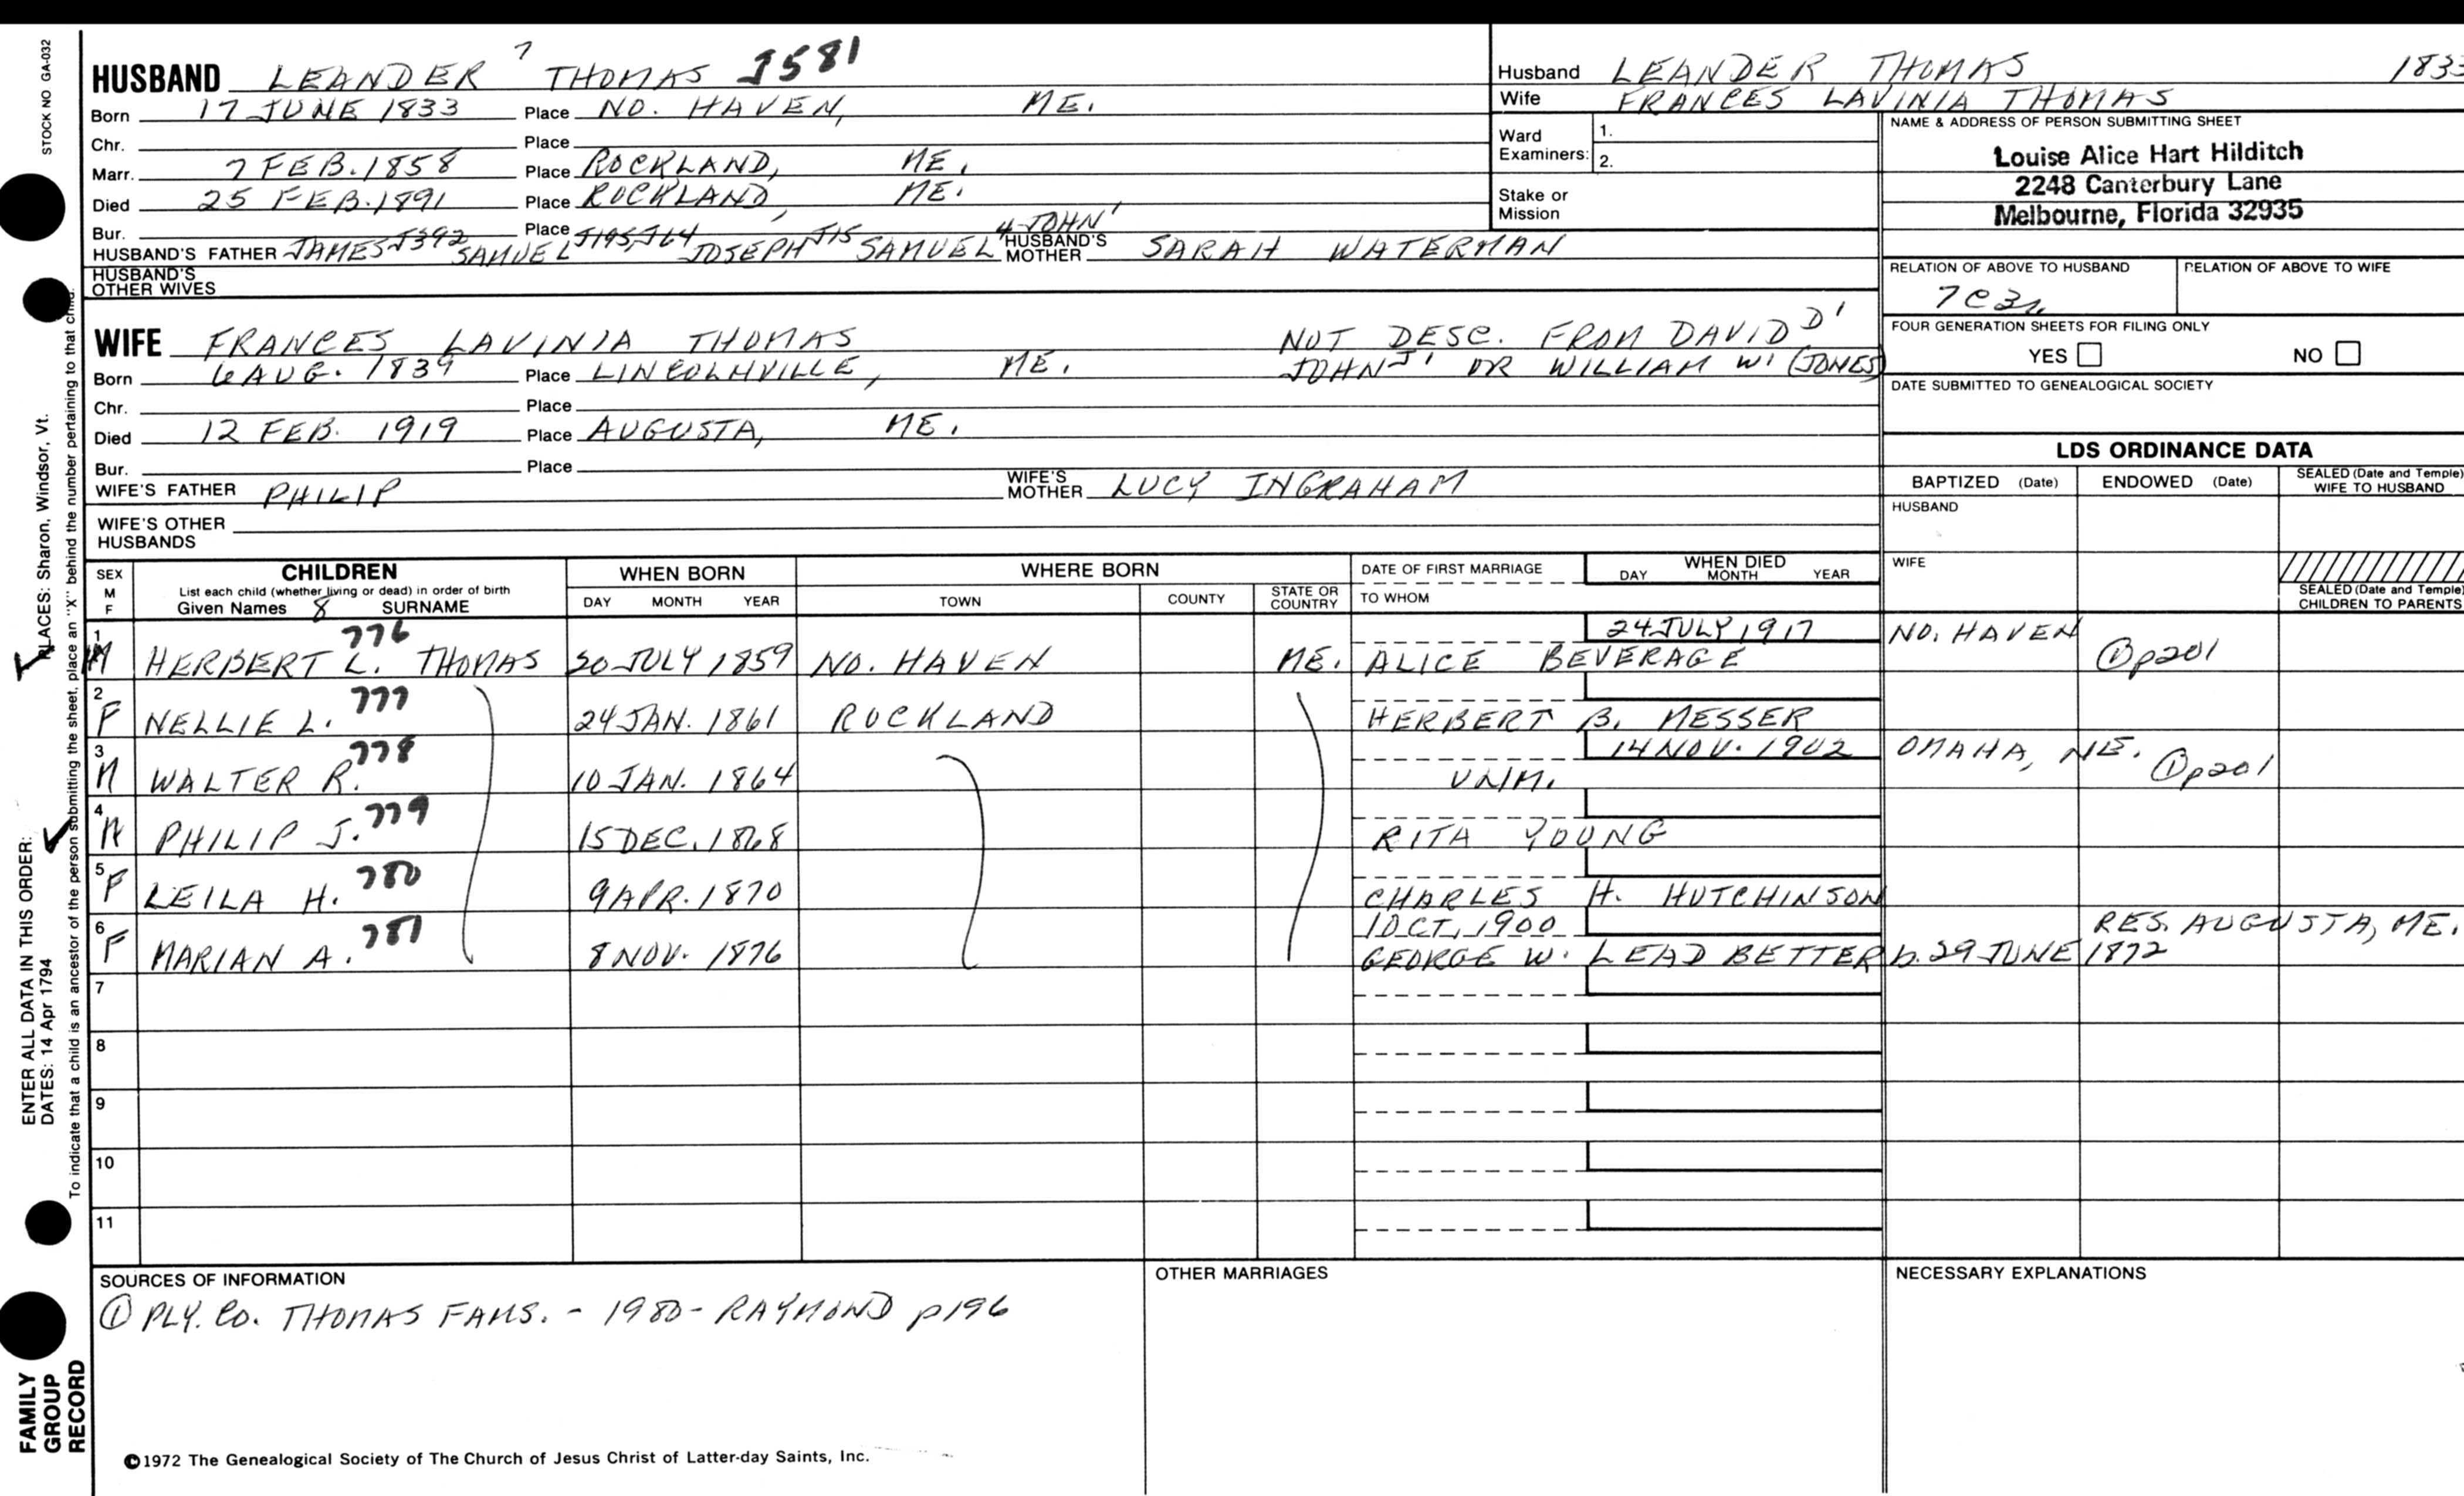 HUSBAND LEANDER 7 THOMAS J581
Born 17 JUNE 1833 Place NO. HAVEN, ME.
Chr. Place
Marr. 7 FEB. 1858 Place ROCKLAND, ME.
Died 25 FEB. 1891 Place ROCKLAND, ME.
Bur. Place
HUSBAND'S FATHER JAMES J392 SAMUEL J195, J64 JOSEPH J15 SAMUEL 4 JOHN 1 HUSBAND'S MOTHER SARAH WATERMAN
HUSBAND'S OTHER WIVES
WIFE FRANCES LAVINIA THOMAS NOT DESC. FROM DAVID D1
Born 6 AUG. 1839 Place LINCOLNVILLE, ME. JOHN J1 OR WILLIAM W1 (JONES)
Chr. Place
Died 12 FEB. 1919 Place AUGUSTA, ME.
Bur. Place
WIFE'S FATHER PHILIP WIFE'S MOTHER LUCY INGRAHAM
WIFE'S OTHER HUSBANDS
Husband LEANDER THOMAS 1833
Wife FRANCES LAVINIA THOMAS
Ward Examiners: 1.
2.
Stake or Mission
NAME & ADDRESS OF PERSON SUBMITTING SHEET
Louise Alice Hart Hilditch
2248 Canterbury Lane
Melbourne, Florida 32935
RELATION OF ABOVE TO HUSBAND RELATION OF ABOVE TO WIFE
7C3r
FOUR GENERATION SHEETS FOR FILING ONLY
YES NO
DATE SUBMITTED TO GENEALOGICAL SOCIETY
LDS ORDINANCE DATA
BAPTIZED (Date) ENDOWED (Date) SEALED (Date and Temple) WIFE TO HUSBAND
HUSBAND
WIFE
SEALED (Date and Temple) CHILDREN TO PARENTS
SEX M F CHILDREN WHEN BORN WHERE BORN DATE OF FIRST MARRIAGE WHEN DIED
List each child (whether living or dead) in order of birth DAY MONTH YEAR
Given Names 8 SURNAME DAY MONTH YEAR TOWN COUNTY STATE OR COUNTRY TO WHOM
1 M HERBERT L. THOMAS 776 20 JULY 1859 NO. HAVEN ME. ALICE BEVERAGE 24 JULY 1917 NO. HAVEN ① p201
2 F NELLIE L. 777 24 JAN. 1861 ROCKLAND HERBERT B. MESSER
3 M WALTER R. 778 10 JAN. 1864 UNM. 14 NOV. 1902 OMAHA, NE. ① p201
4 M PHILIP J. 779 15 DEC. 1868 RITA YOUNG
5 F LEILA H. 780 9 APR. 1870 CHARLES H. HUTCHINSON
6 F MARIAN A. 781 8 NOV. 1876 1 OCT, 1900 RES. AUGUSTA, ME.
GEORGE W. LEAD BETTER b. 29 JUNE 1872
7
8
9
10
11
SOURCES OF INFORMATION OTHER MARRIAGES NECESSARY EXPLANATIONS
① PLY. CO. THOMAS FAMS. - 1980 - RAYMOND p196
©1972 The Genealogical Society of The Church of Jesus Christ of Latter-day Saints, Inc.
STOCK NO GA-032
PLACES: Sharon, Windsor, Vt.
ENTER ALL DATA IN THIS ORDER:
DATES: 14 Apr 1794
To indicate that a child is an ancestor of the person submitting the sheet, place an "X" behind the number pertaining to that child.
FAMILY
GROUP
RECORD